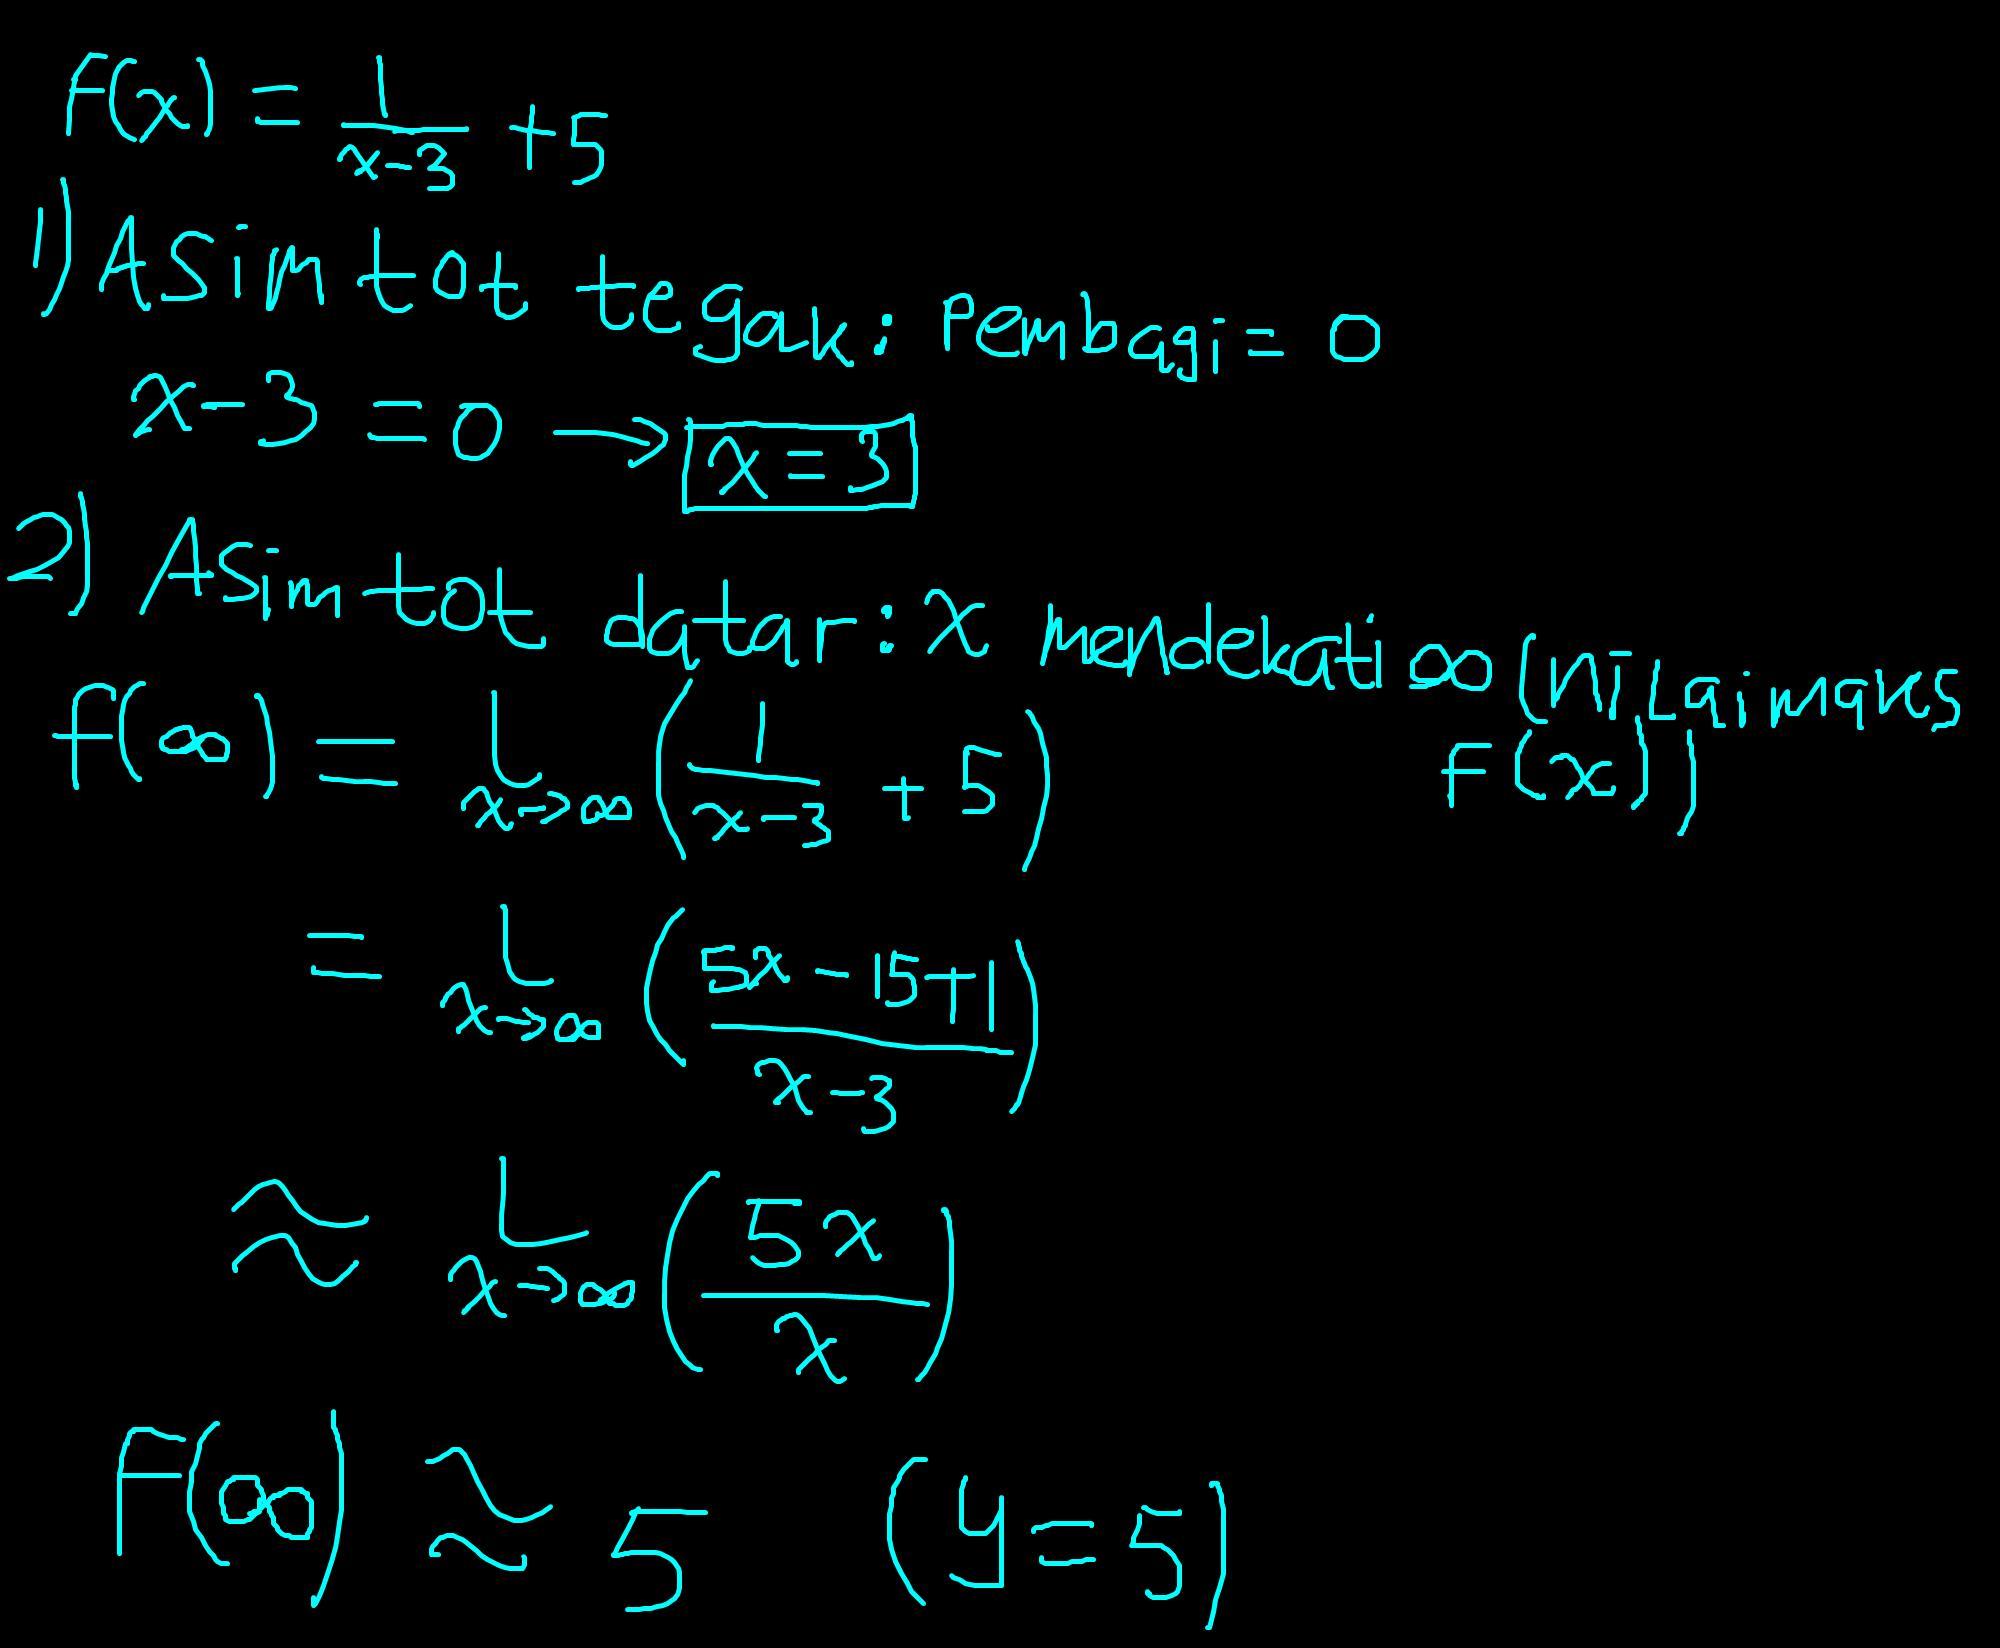 F(x) = 1/(x-3) + 5
1) Asimtot tegak: Pembagi = 0
x-3 = 0 → x = 3
2) Asimtot datar: x mendekati ∞ (niLai maks
F(x))
f(∞) = L x→∞ (1/(x-3) + 5)
= L x→∞ ((5x - 15+1)/(x-3))
≈ L x→∞ (5x/x)
F(∞) ≈ 5 (y=5)